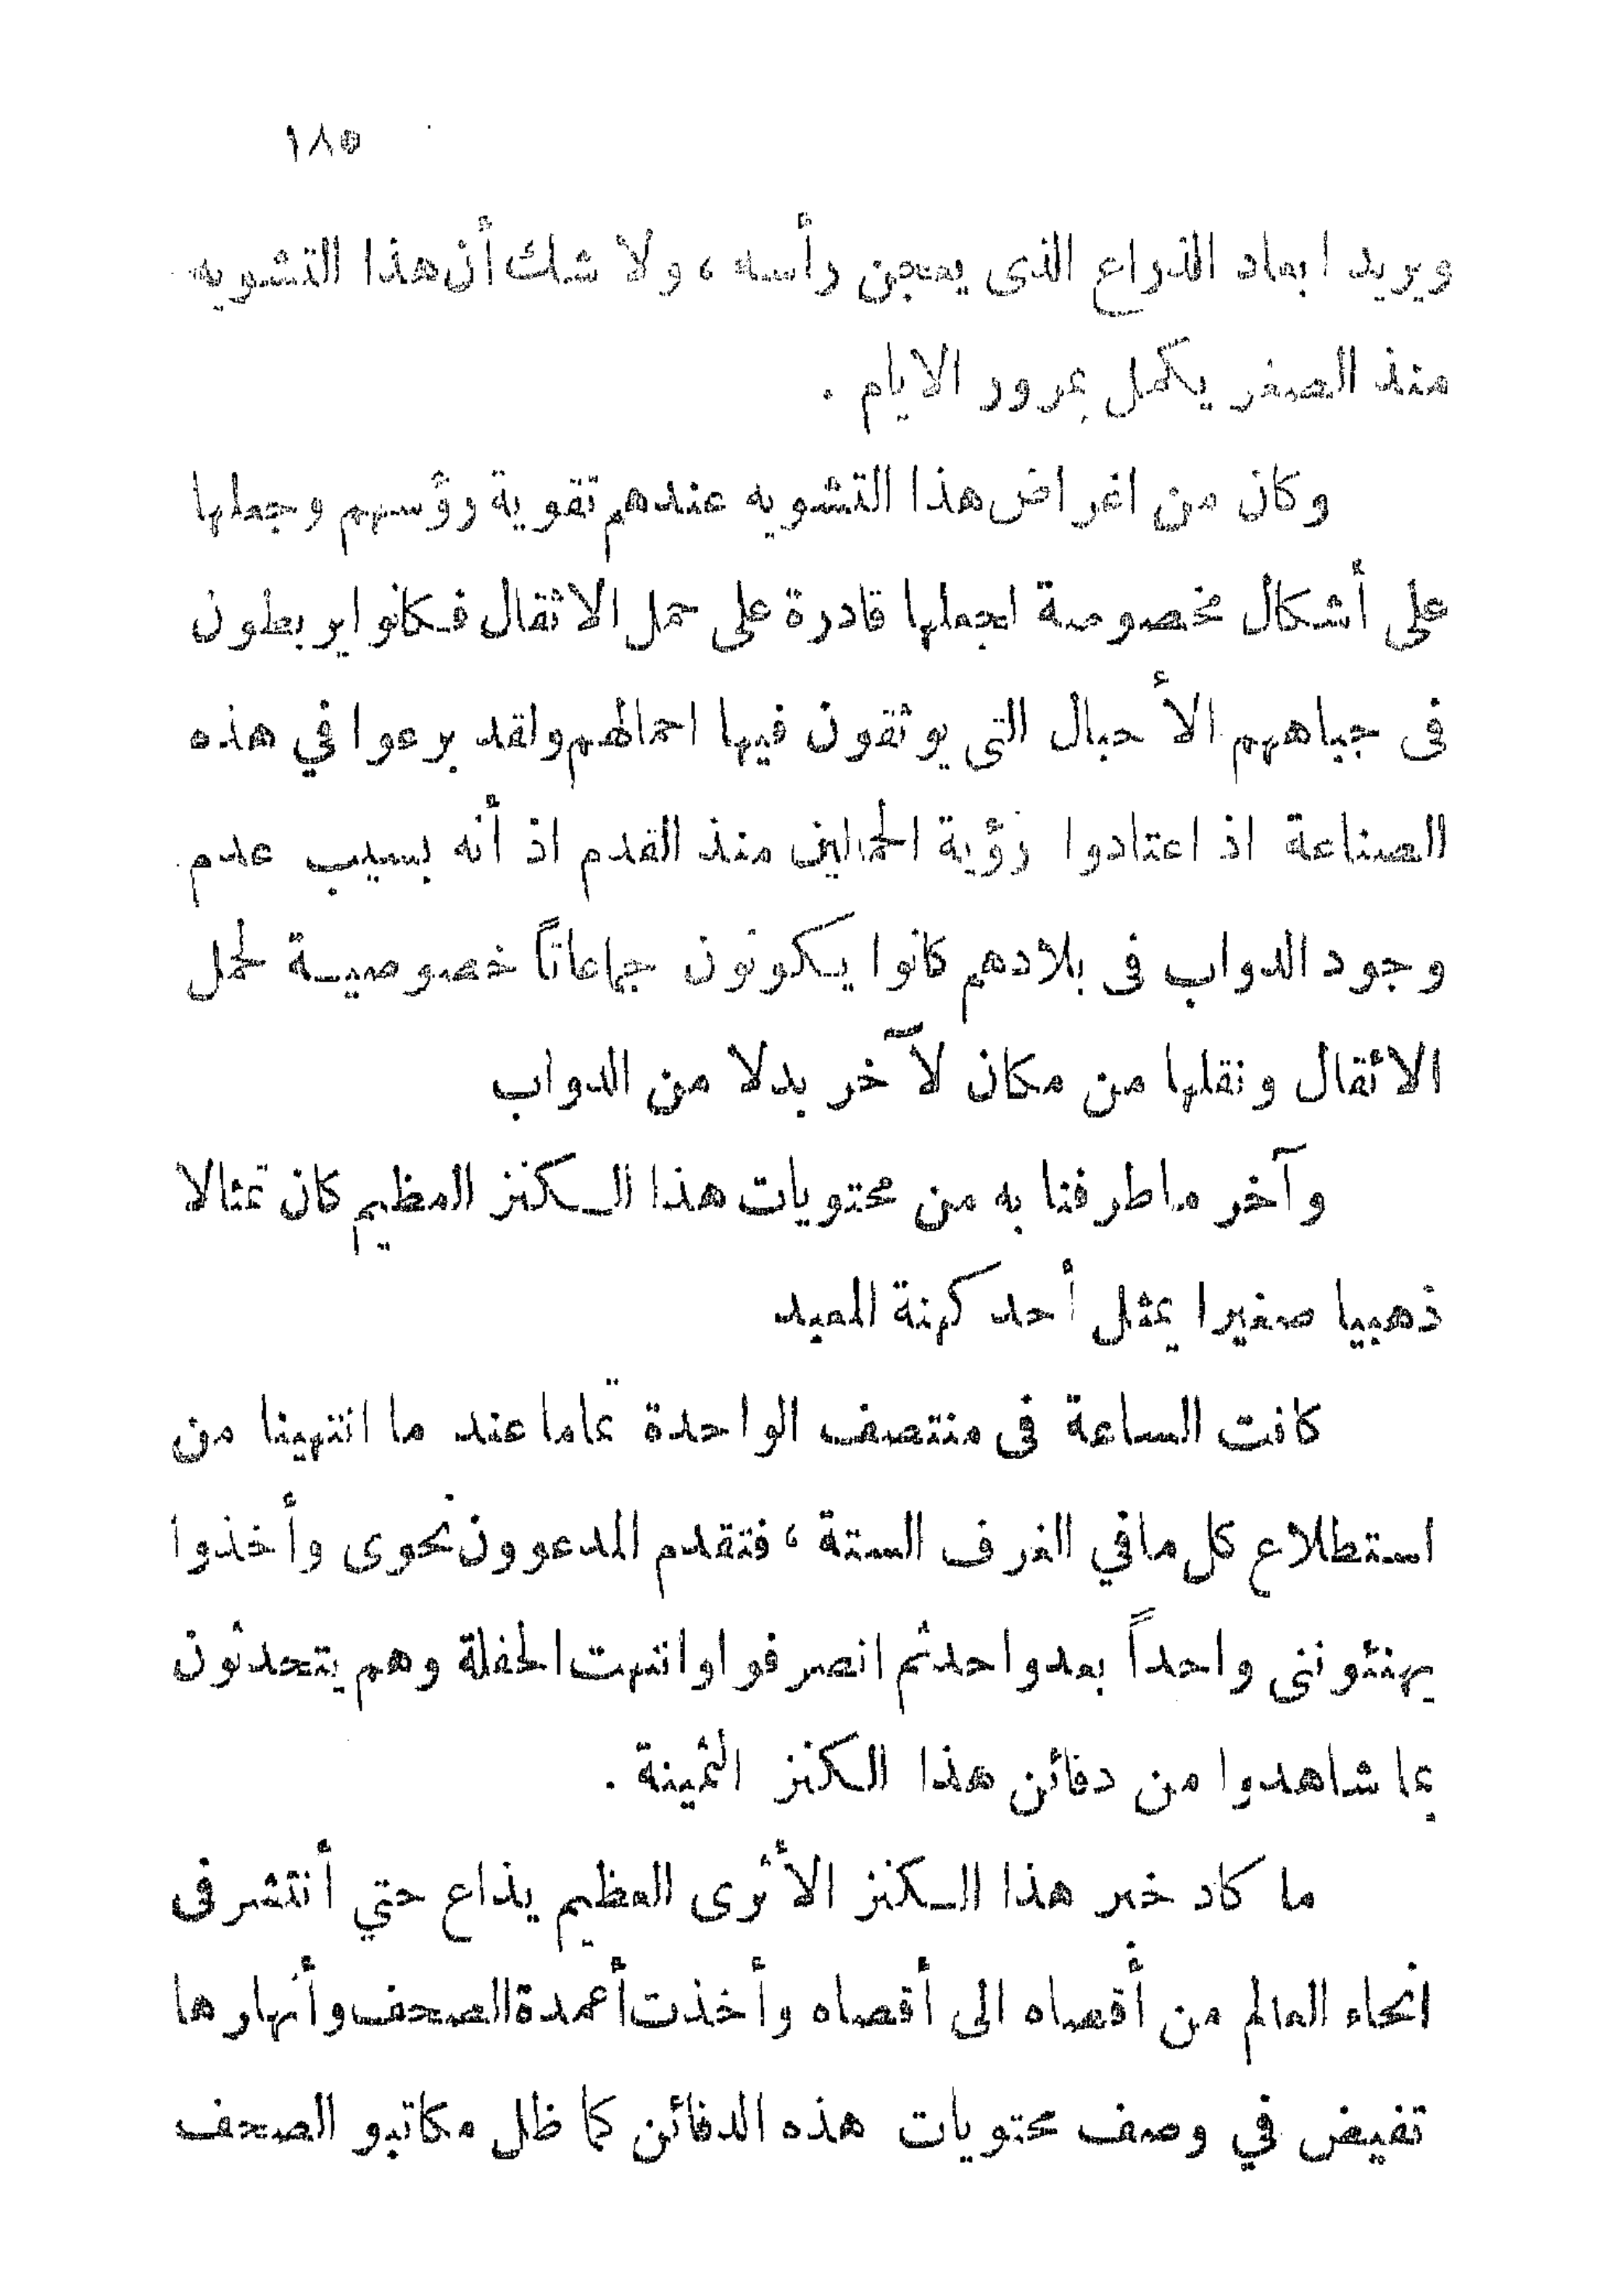 ١٨٥
ويريد ابعاد الذراع الذى يعجن رأسه ، ولا شك أن هذا التشويه
منذ الصغر يكمل بمرور الايام .
وكان من اغراض هذا التشويه عندهم تقوية رؤسهم وجعلها
على أشكال مخصوصة لجعلها قادرة على حمل الاثقال فكانوا يربطون
فى جباههم الأحبال التى يوثقون فيها احمالهم ولقد برعوا في هذه
الصناعة اذ اعتادوا رؤية الحمالين منذ القدم اذ أنه بسبب عدم
وجود الدواب فى بلادهم كانوا يكونون جماعاتاً خصوصية لحمل
الاثقال ونقلها من مكان لآخر بدلا من الدواب
وآخر ماطرفنا به من محتويات هذا الكنز العظيم كان تمثالا
ذهبيا صغيرا يمثل أحد كهنة المعبد
كانت الساعة فى منتصف الواحدة تماما عند ما انتهينا من
استطلاع كل مافي الغرف الستة ، فتقدم المدعوون نحوى وأخذوا
يهنئوننى واحداً بعد واحد ثم انصرفوا وانتهت الحفلة وهم يتحدثون
بما شاهدوا من دفائن هذا الكنز الثمينة .
ما كاد خبر هذا الكنز الأثرى العظيم يذاع حتي أنتشر فى
انحاء العالم من أقصاه الى أقصاه وأخذت أعمدة الصحف وأنهارها
تفيض في وصف محتويات هذه الدفائن كما ظل مكاتبو الصحف